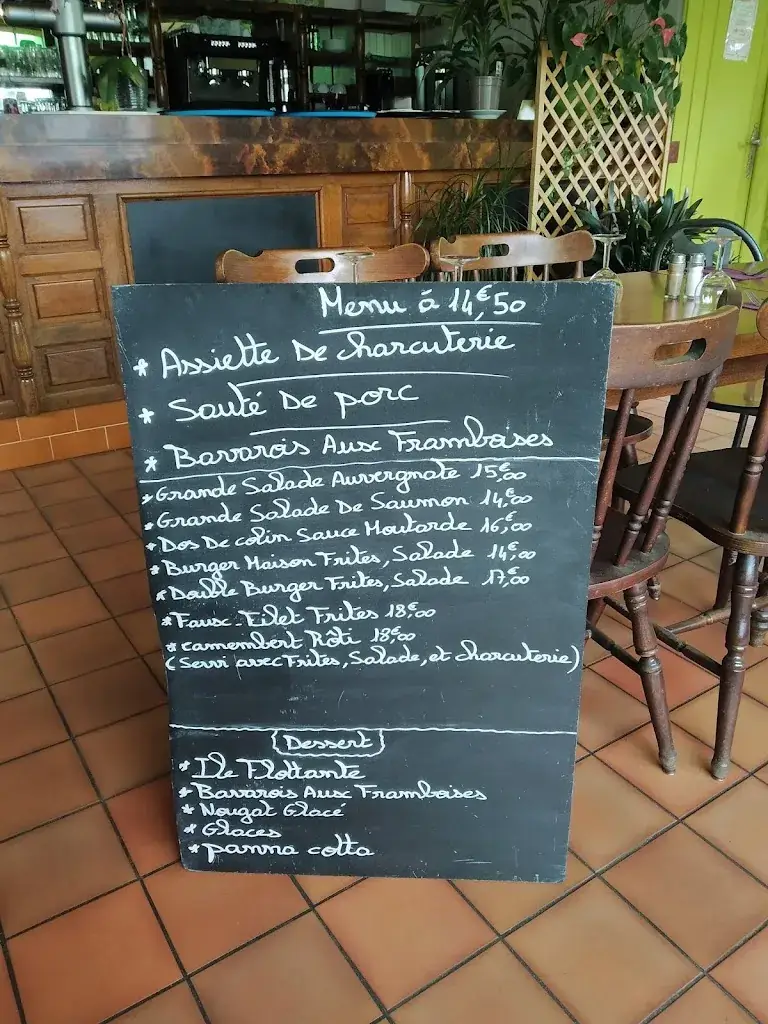 Menu à 14,€50
* Assiette De charcuterie
* Sauté De porc
* Bavarois Aux Framboises
* Grande Salade Auvergnate 15,€00
* Grande Salade De Saumon 14,€00
* Dos De colin Sauce Moutarde 16,€00
* Burger Maison Frites, Salade 14,€00
* Double Burger Frites, Salade 17,€00
* Faux-Filet Frites 18,€00
* camembert Rôti 18,€00
(Servi avec Frites, Salade, et charcuterie)
Dessert
* Ile Flottante
* Bavarois Aux Framboises
* Nougat Glacé
* Glaces
* panna cotta